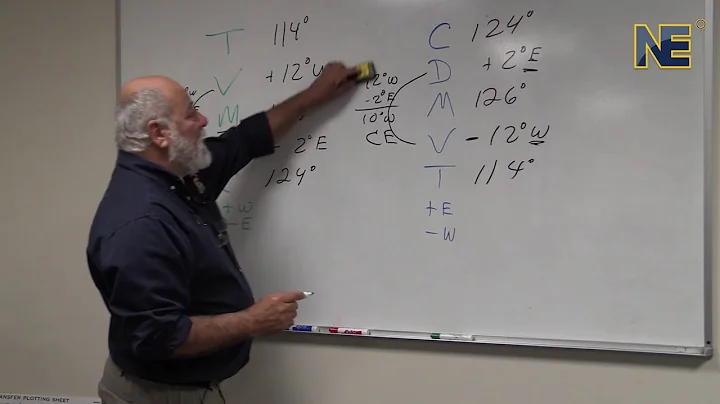 T 114°
V + 12° W
M
- 2° E
124°
+ W
- E
12° W
- 2° E
10° W
CE
C 124°
D + 2° E
M 126°
V - 12° W
T 114°
+ E
- W
NE
TRANSFER PLOTTING SHEET